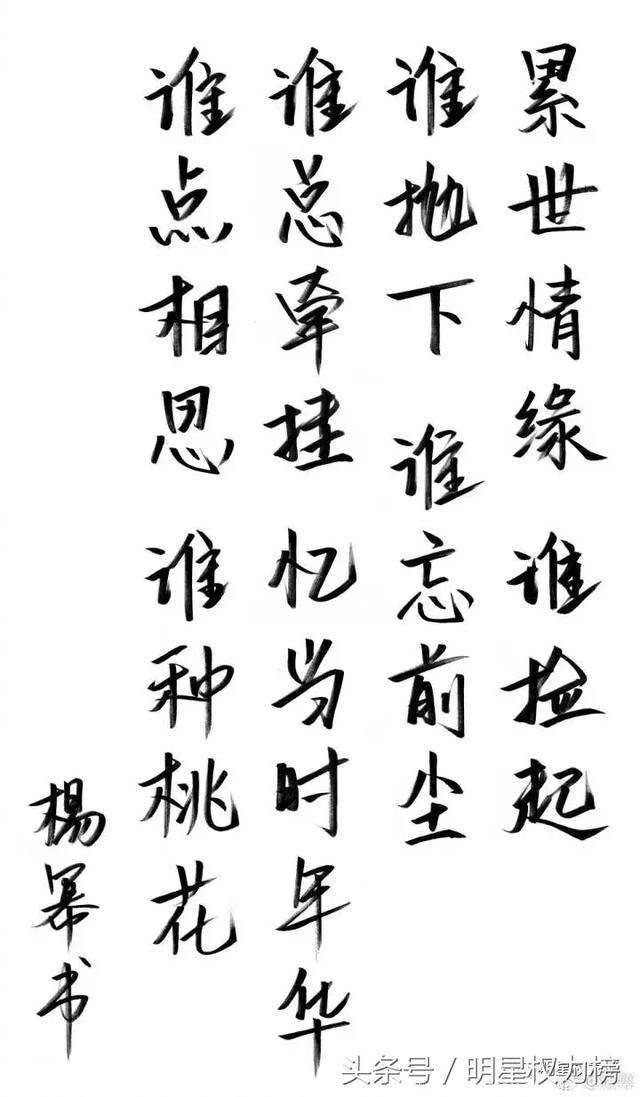 累世情缘 谁捡起
谁抛下 谁忘前尘
谁总牵挂 忆当时年华
谁点相思 谁种桃花
楊幂书
头条号 / 明星权力榜